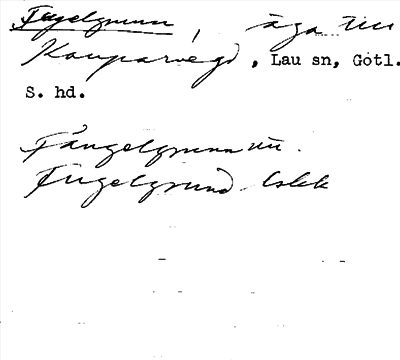 Fugelgrunn, äga till
Kauparvegd, Lau sn, Gotl.
S. hd.
Fångelgrunnuu.
Fugelgrund lskk